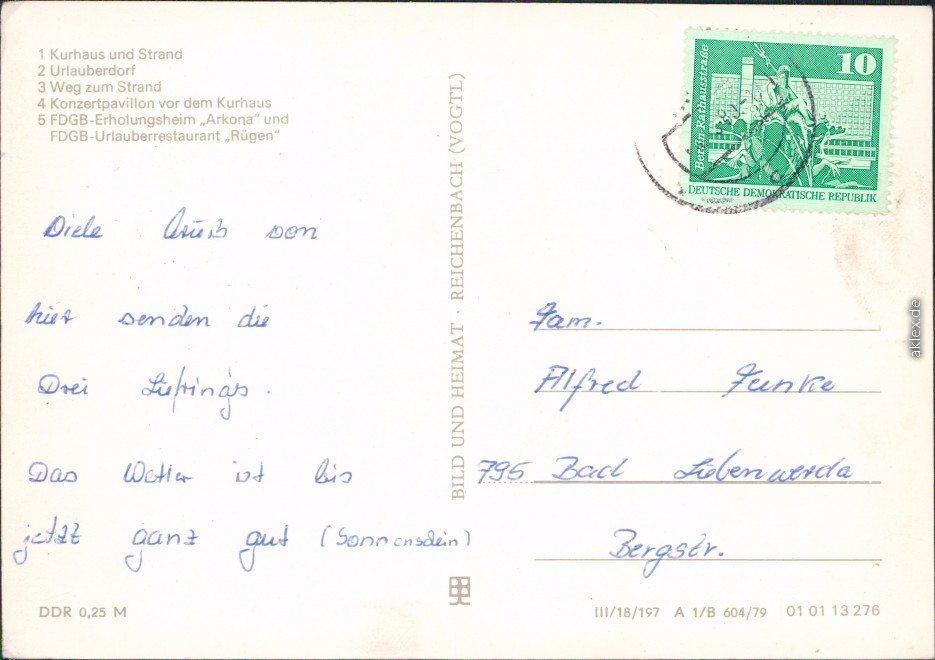 1 Kurhaus und Strand
2 Urlauberdorf
3 Weg zum Strand
4 Konzertpavillon vor dem Kurhaus
5 FDGB-Erholungsheim „Arkona“ und
FDGB-Urlauberrestaurant „Rügen“
Viele Gruß von
hier senden die
Drei
Das Wetter ist bis
jetzt ganz gut (Sonnenschein)
DDR 0,25 M
BILD UND HEIMAT · REICHENBACH (VOGTL)
10
Berlin Rathausstraße
DEUTSCHE DEMOKRATISCHE REPUBLIK
Fam.
Alfred Funke
795 Bad Liebenwerda
Bergstr.
III/18/197 A 1/B 604/79 01 01 13 276
aklex.de